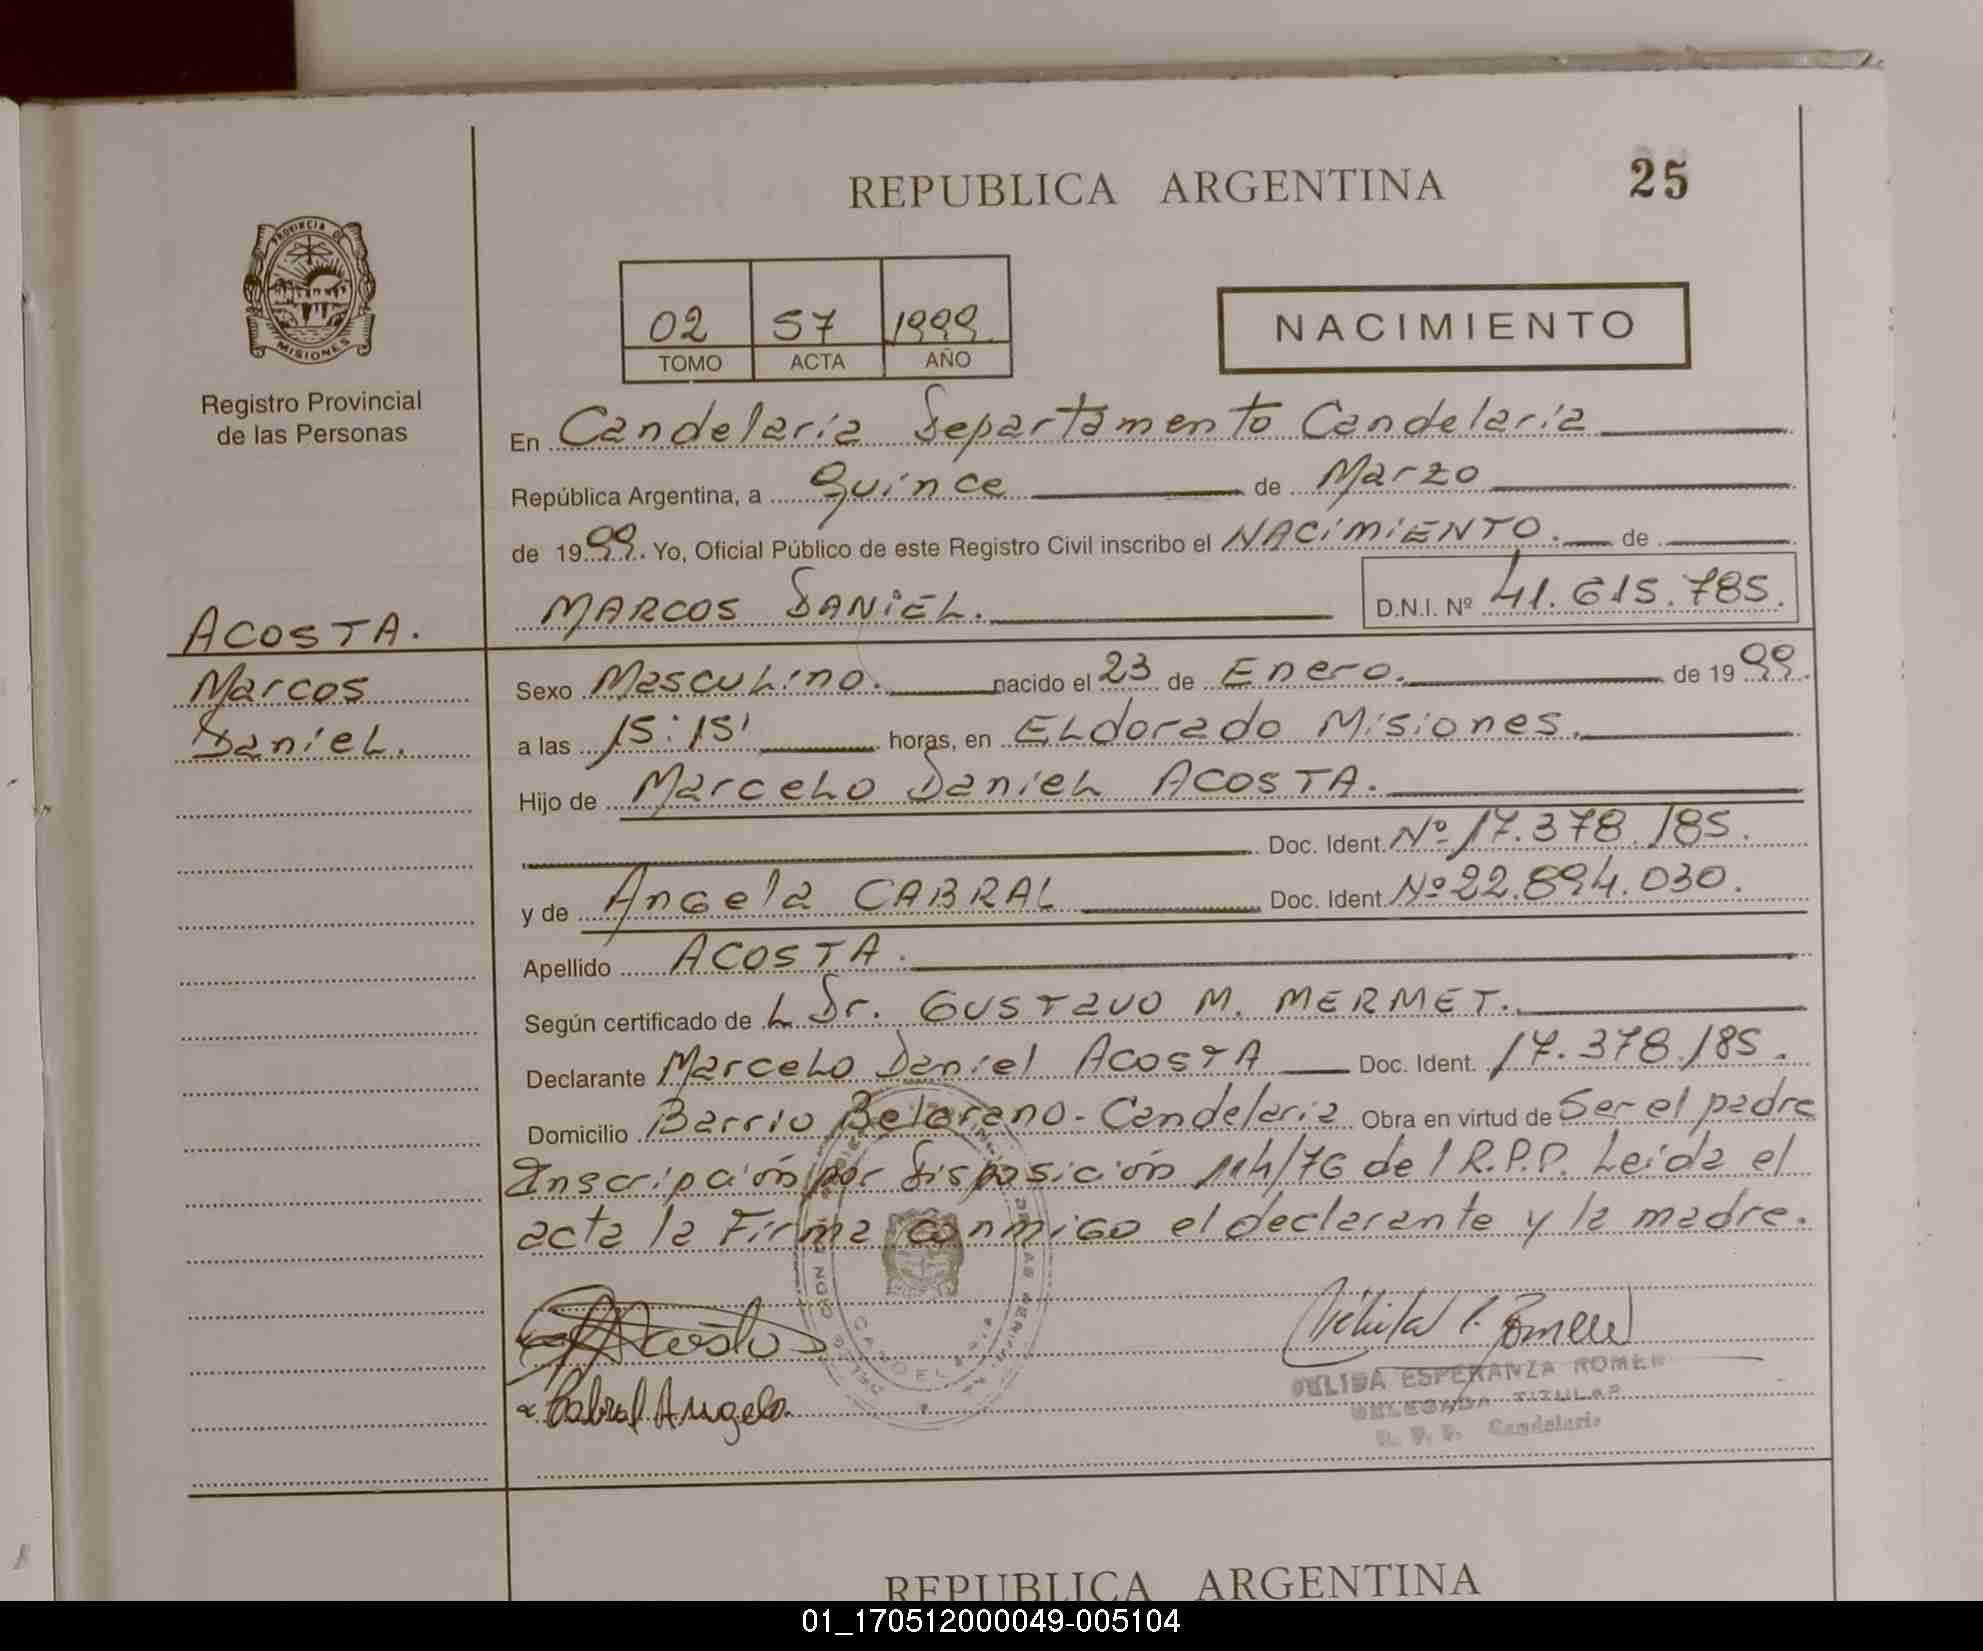 REPUBLICA ARGENTINA
25
PROVINCIA DE
MISIONES
Registro Provincial
de las Personas
02 57 1999
TOMO ACTA AÑO
NACIMIENTO
En Candelaria Departamento Candelaria
República Argentina, a Quince de Marzo
de 1999. Yo, Oficial Público de este Registro Civil inscribo el NACIMIENTO. de
MARCOS DANIEL. D.N.I. Nº 41.615.785.
ACOSTA.
Marcos
Daniel.
Sexo Masculino. nacido el 23 de Enero. de 1999.
a las 15:15' horas, en Eldorado Misiones.
Hijo de Marcelo Daniel ACOSTA.
Doc. Ident. Nº 17.378.185.
y de Angela CABRAL Doc. Ident. Nº 22.894.030.
Apellido ACOSTA.
Según certificado del Dr. GUSTAVO M. MERMET.
Declarante Marcelo Daniel ACOSTA Doc. Ident. 17.378.185.
Domicilio Barrio Belgrano - Candelaria Obra en virtud de Ser el padre
Inscripción por disposición 114/76 del R.P.P. Leída el
acta la Firma conmigo el declarante y la madre.
Acosta
Cabral Angela.
DELIDA ESPERANZA ROMER
DELEGADA TITULAR
R. P. P. Candelaria
REPUBLICA ARGENTINA
01_170512000049-005104